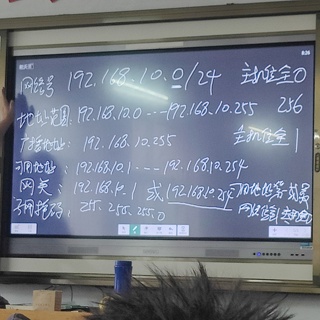 网络号 192.168.10.0/24 主机位全0
地址范围:192.168.10.0---192.168.10.255 256
广播地址: 192.168.10.255 主机位全1
可用地址:192.168.10.1---192.168.10.254
网关:192.168.10.1 或 192.168.10.254 可用地址第
子网掩码:255.255.255.0